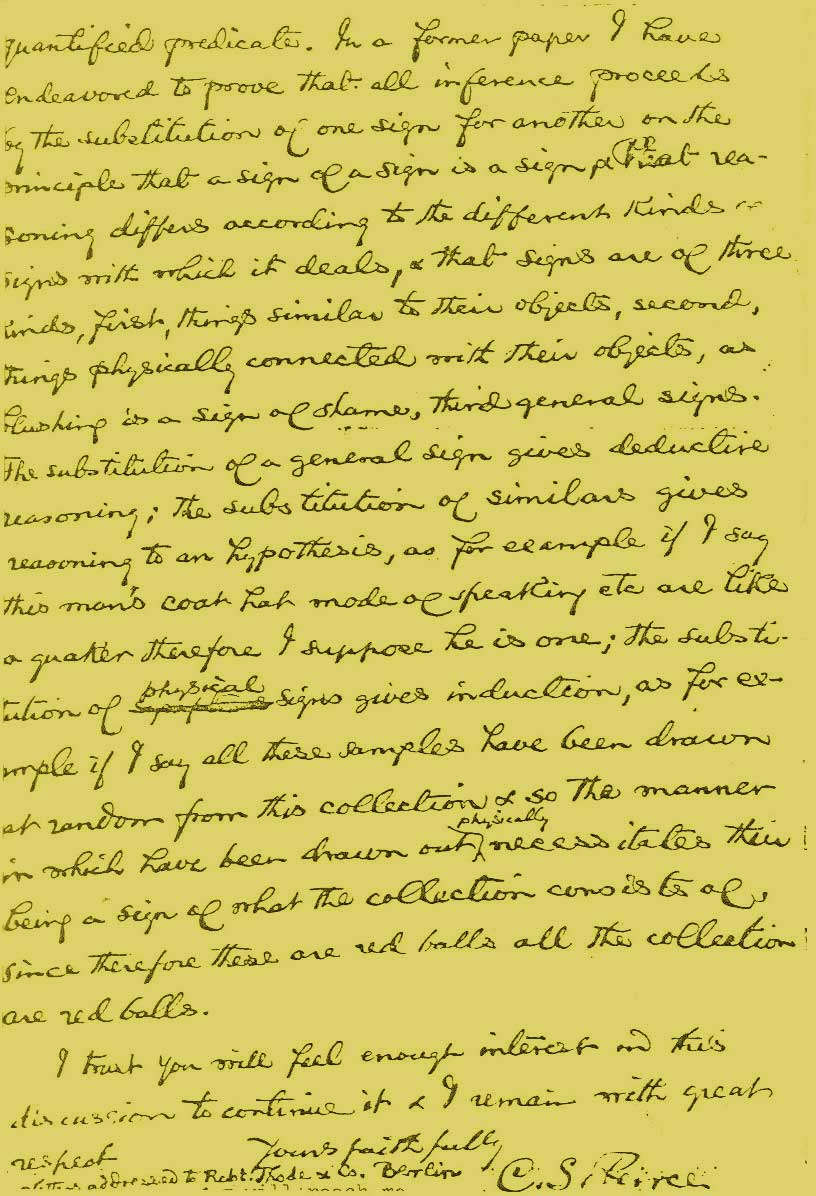 quantified predicate. In a former paper I have
endeavored to prove that all inference proceeds
by the substitution of one sign for another on the
principle that a sign of a sign is a sign & that rea-
soning differs according to the different kinds of
signs with which it deals, & that signs are of three
kinds, first, things similar to their objects, second,
things physically connected with their objects, as
blushing is a sign of shame, third general signs.
The substitution of a general sign gives deductive
reasoning; the substitution of similars gives
reasoning to an hypothesis, as for example if I say
this man's coat hat mode of speaking etc are like
a quaker therefore I suppose he is one; the substi-
tution of physical signs gives induction, as for ex-
ample if I say all these samples have been drawn
at random from this collection & so the manner
in which have been drawn out physically necessitates their
being a sign of what the collection consists of,
since therefore these are red balls all the collection
are red balls.
I trust you will feel enough interest in this
discussion to continue it & I remain with great
respect
Yours faithfully
C. S. Peirce
letters addressed to Robt. Thode & Co. Berlin